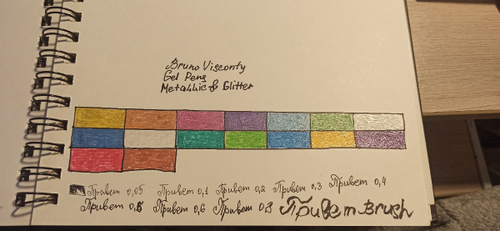 Bruno Visconty
Gel Pens
Metallic & Glitter
Привет 0,05 Привет 0,1 Привет 0,2 Привет 0,3 Привет 0,4
Привет 0,5 Привет 0,6 Привет 0,8 Привет Brush